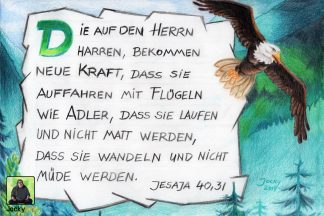 DIE AUF DEN HERRN
HARREN, BEKOMMEN
NEUE KRAFT, DASS SIE
AUFFAHREN MIT FLÜGELN
WIE ADLER, DASS SIE LAUFEN
UND NICHT MATT WERDEN,
DASS SIE WANDELN UND NICHT
MÜDE WERDEN.
JESAJA 40,31
Jecky
Jecky